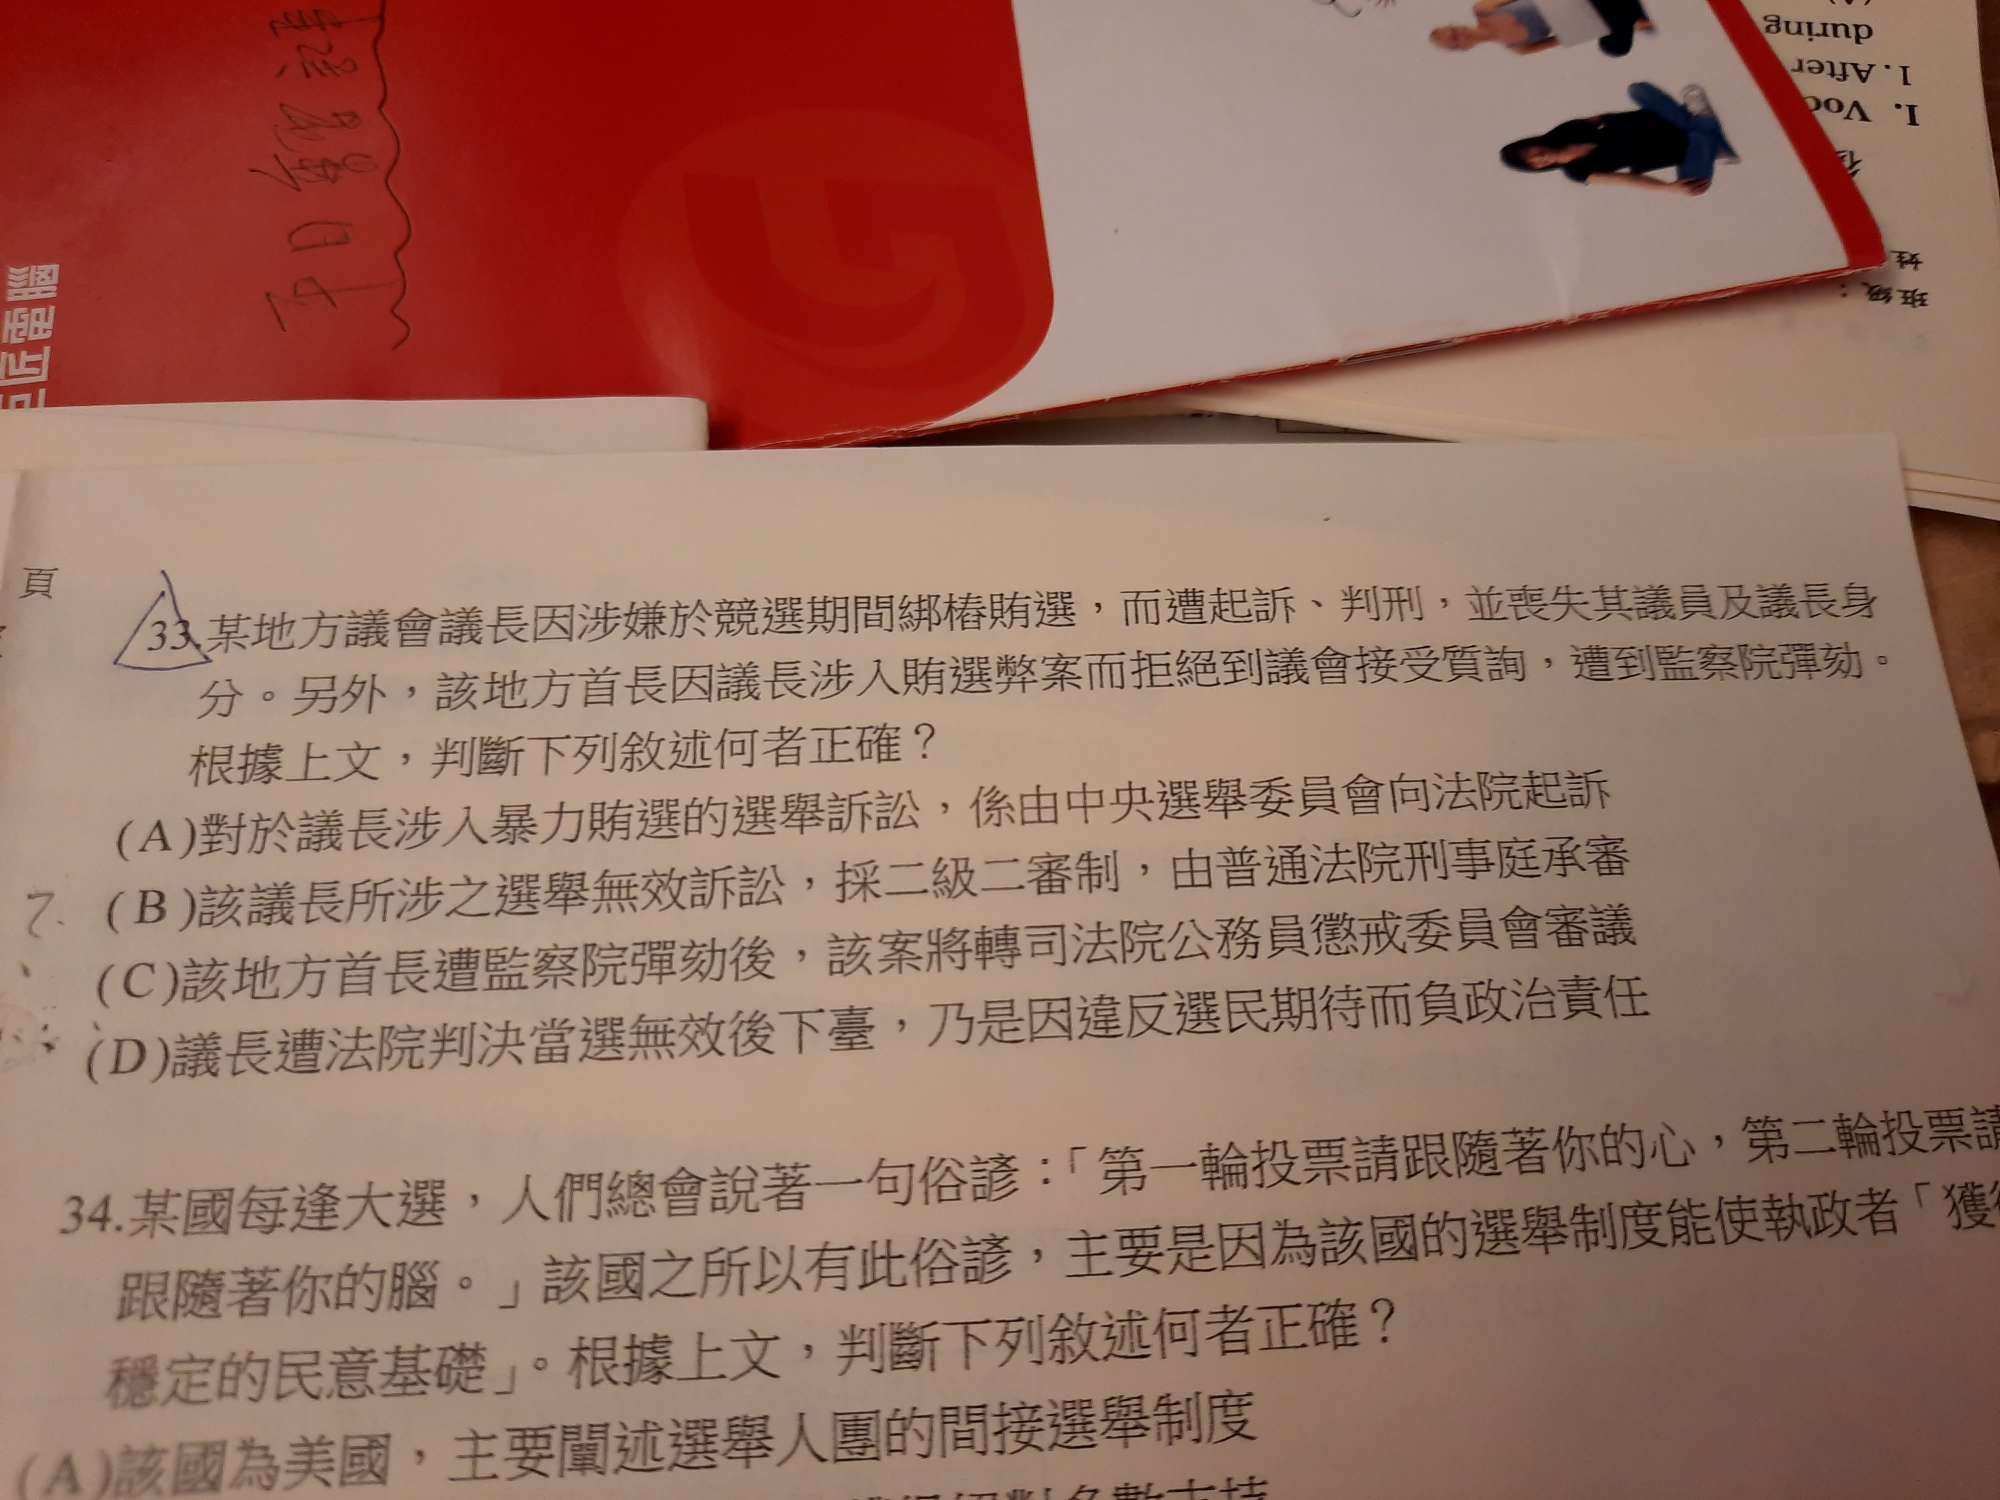 during
1. After
I. Voc
姓
班級：
頁
33.某地方議會議長因涉嫌於競選期間綁樁賄選，而遭起訴、判刑，並喪失其議員及議長身
分。另外，該地方首長因議長涉入賄選弊案而拒絕到議會接受質詢，遭到監察院彈劾。
根據上文，判斷下列敘述何者正確？
(A)對於議長涉入暴力賄選的選舉訴訟，係由中央選舉委員會向法院起訴
(B)該議長所涉之選舉無效訴訟，採二級二審制，由普通法院刑事庭承審
(C)該地方首長遭監察院彈劾後，該案將轉司法院公務員懲戒委員會審議
(D)議長遭法院判決當選無效後下臺，乃是因違反選民期待而負政治責任
34.某國每逢大選，人們總會說著一句俗諺：「第一輪投票請跟隨著你的心，第二輪投票請
跟隨著你的腦。」該國之所以有此俗諺，主要是因為該國的選舉制度能使執政者「獲得
穩定的民意基礎」。根據上文，判斷下列敘述何者正確？
(A)該國為美國，主要闡述選舉人團的間接選舉制度